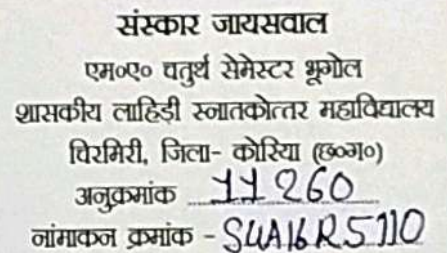 संस्कार जायसवाल
एम०ए० चतुर्थ सेमेस्टर भूगोल
शासकीय लाहिड़ी स्नातकोत्तर महाविद्यालय
चिरमिरी, जिला- कोरिया (छ०ग०)
अनुक्रमांक 11260
नांमाकन क्रमांक - SUA16R5110